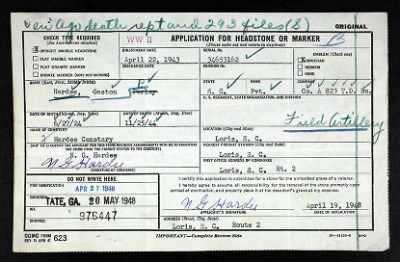 Ven App death rept and 293 files (S)
ORIGINAL
CHECK TYPE REQUIRED
WW II
APPLICATION FOR HEADSTONE OR MARKER
B
UPRIGHT MARBLE HEADSTONE
FLAT MARBLE MARKER
FLAT GRANITE MARKER
BRONZE MARKER
ENLISTMENT DATE
April 22, 1943
SERIAL No.
34653162
EMBLEM (Check one)
CHRISTIAN
HEBREW
NONE
DISCHARGE DATE
STATE
S. C.
RANK
Pvt.
COMPANY
Co. A 823 T.D. Bn.
NAME (Last, First, Middle Initial)
Hardee, Gaston
U. S. REGIMENT, STATE ORGANIZATION, AND DIVISION
DATE OF BIRTH (Month, Day, Year)
DATE OF DEATH (Month, Day, Year)
11/25/44
Field Artillery
NAME OF CEMETERY
Hardee Cemetary
LOCATION (City and State)
Loris, S. C.
S. C. Hardee
NEAREST FREIGHT STATION (City and State)
Loris, S. C.
N G Hardy
POST OFFICE ADDRESS OF CONSIGNEE
Loris, S.C. Rt. 2
DO NOT WRITE HERE
FOR VERIFICATION
APR 27 1948
I certify this application is submitted for a stone for the unmarked grave of a veteran.
I hereby agree to assume all responsibility for the removal of the stone promptly upon arrival at destination, and properly place it at the decedent's grave at my expense.
TATE, GA. 20 MAY 1948
N G Hardy
April 19, 1948
APPLICANT'S SIGNATURE
DATE OF APPLICATION
976447
ADDRESS (Street, City, State)
Loris, S.C. Route 2
OQMG FORM
623
IMPORTANT—Complete Reverse Side